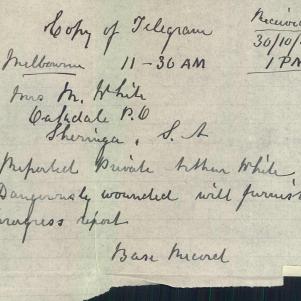 Copy of Telegram
Received
30/10/
Melbourne 11-30 AM 1 PM
Mrs M. White
Oakdale P.O
Sheringa, S.A
Reported Private Arthur White
Dangerously wounded will furnis
progress report
Base Record